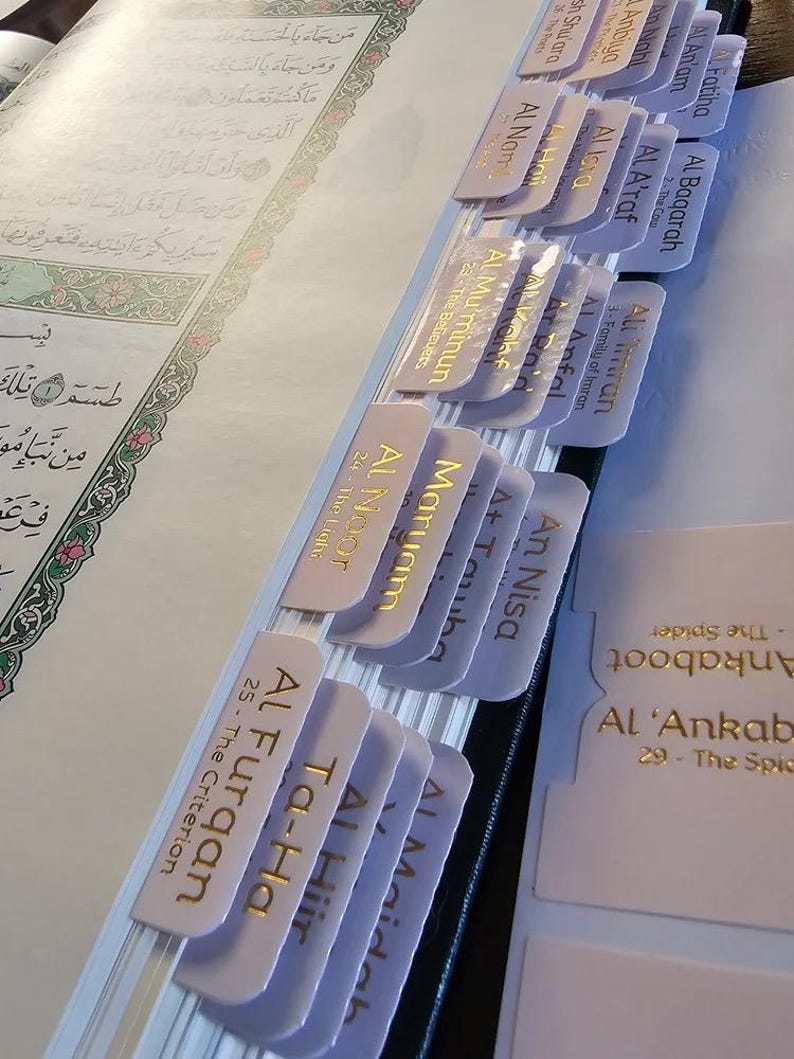 مَن جَآءَ بِٱلْحَسَنَةِ فَلَهُ
وَمَن جَآءَ بِٱلسَّيِّئَةِ
مَا كُنتُمْ تَعْمَلُونَ
ٱلَّذِى حَرَّمَهَا وَلَهُ
وَأَنْ أَتْلُوَا۟
وَمَن ضَلَّ فَقُلْ إِنَّمَآ أَنَا۠
سَيُرِيكُمْ ءَايَٰتِهِۦ فَتَعْرِفُونَهَا
طسٓمٓ ١ تِلْكَ
مِن نَّبَإِ مُو
فِرْعَ
Ash Shu'ara
26 - The Poets
Al Anbiya
An Nahl
Al An'am
Al Fatiha
Al Naml
Al Hajj
Al Isra
Al A'raf
Al Baqarah
2 - The Cow
Al Mu'minun
23 - The Believers
Al Kahf
Ar Ra'd
Al Anfal
Ali 'Imran
3 - Family of Imran
Al Noor
24 - The Light
Maryam
At Tawba
An Nisa
Al Furqan
25 - The Criterion
Ta-Ha
Al Hijr
Al Maidah
- The Spider
Ankaboot
Al 'Ankab
29 - The Spid